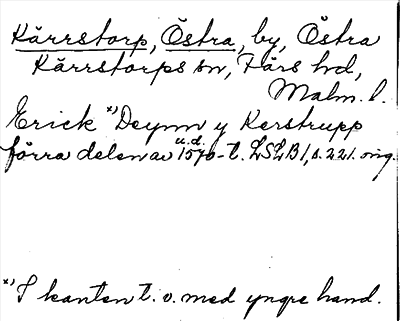 Kärrstorp, Östra, by, Östra
Kärrstorps sn, Färs hd,
Malm. l.
Erick *) Deynn y Kerstrupp
förra delen av u.d. 1570-t. LSLB1, s. 221. orig.
*) I kanten t. v. med yngre hand.